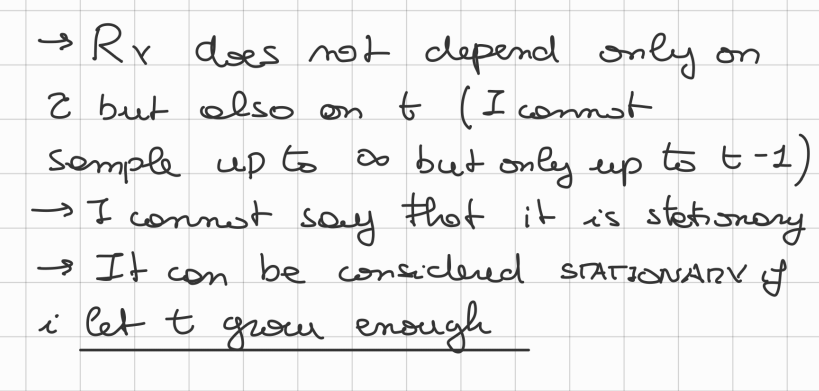 → Rγ does not depend only on
τ but also on t (I cannot
sample up to ∞ but only up to t-1)
→ I cannot say that it is stetionary
→ It can be considered STATIONARY if
i let t grow enough